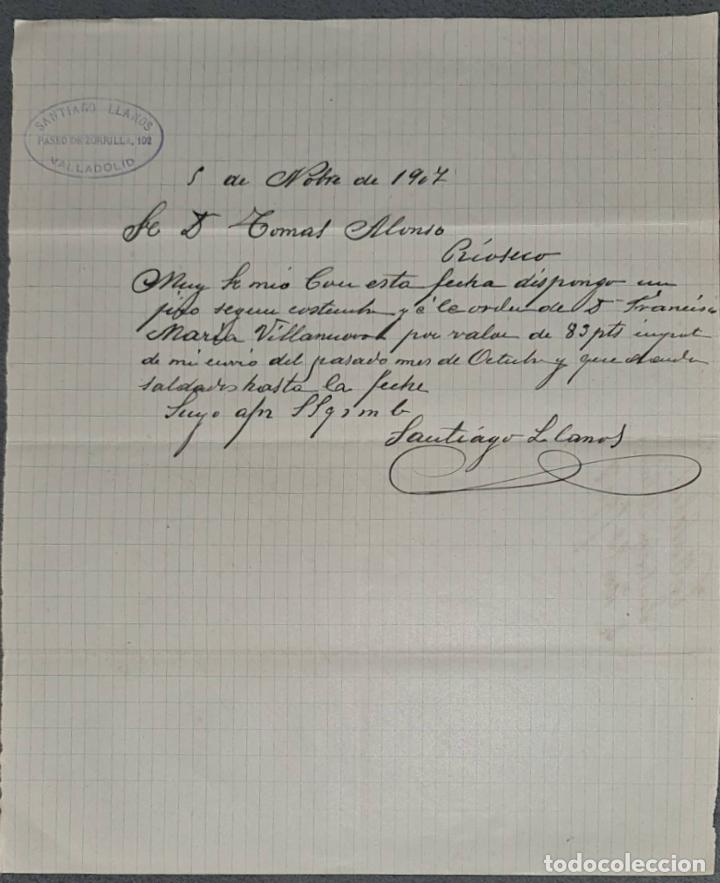 SANTIAGO LLANOS
PASEO DE ZORRILLA, 102
VALLADOLID
5 de Nobre de 1907
Sr D Tomas Alonso
Rioseco
Muy Sr mio Con esta fecha dispongo un
jiro segun costumbre y á la orden de D Francisco
Maria Villanueva por valor de 83 pts import
de mi envio del pasado mes de Octubre y que
saldados hasta la fecha
Suyo afm SS q s m b
Santiago Llanos
todocoleccion